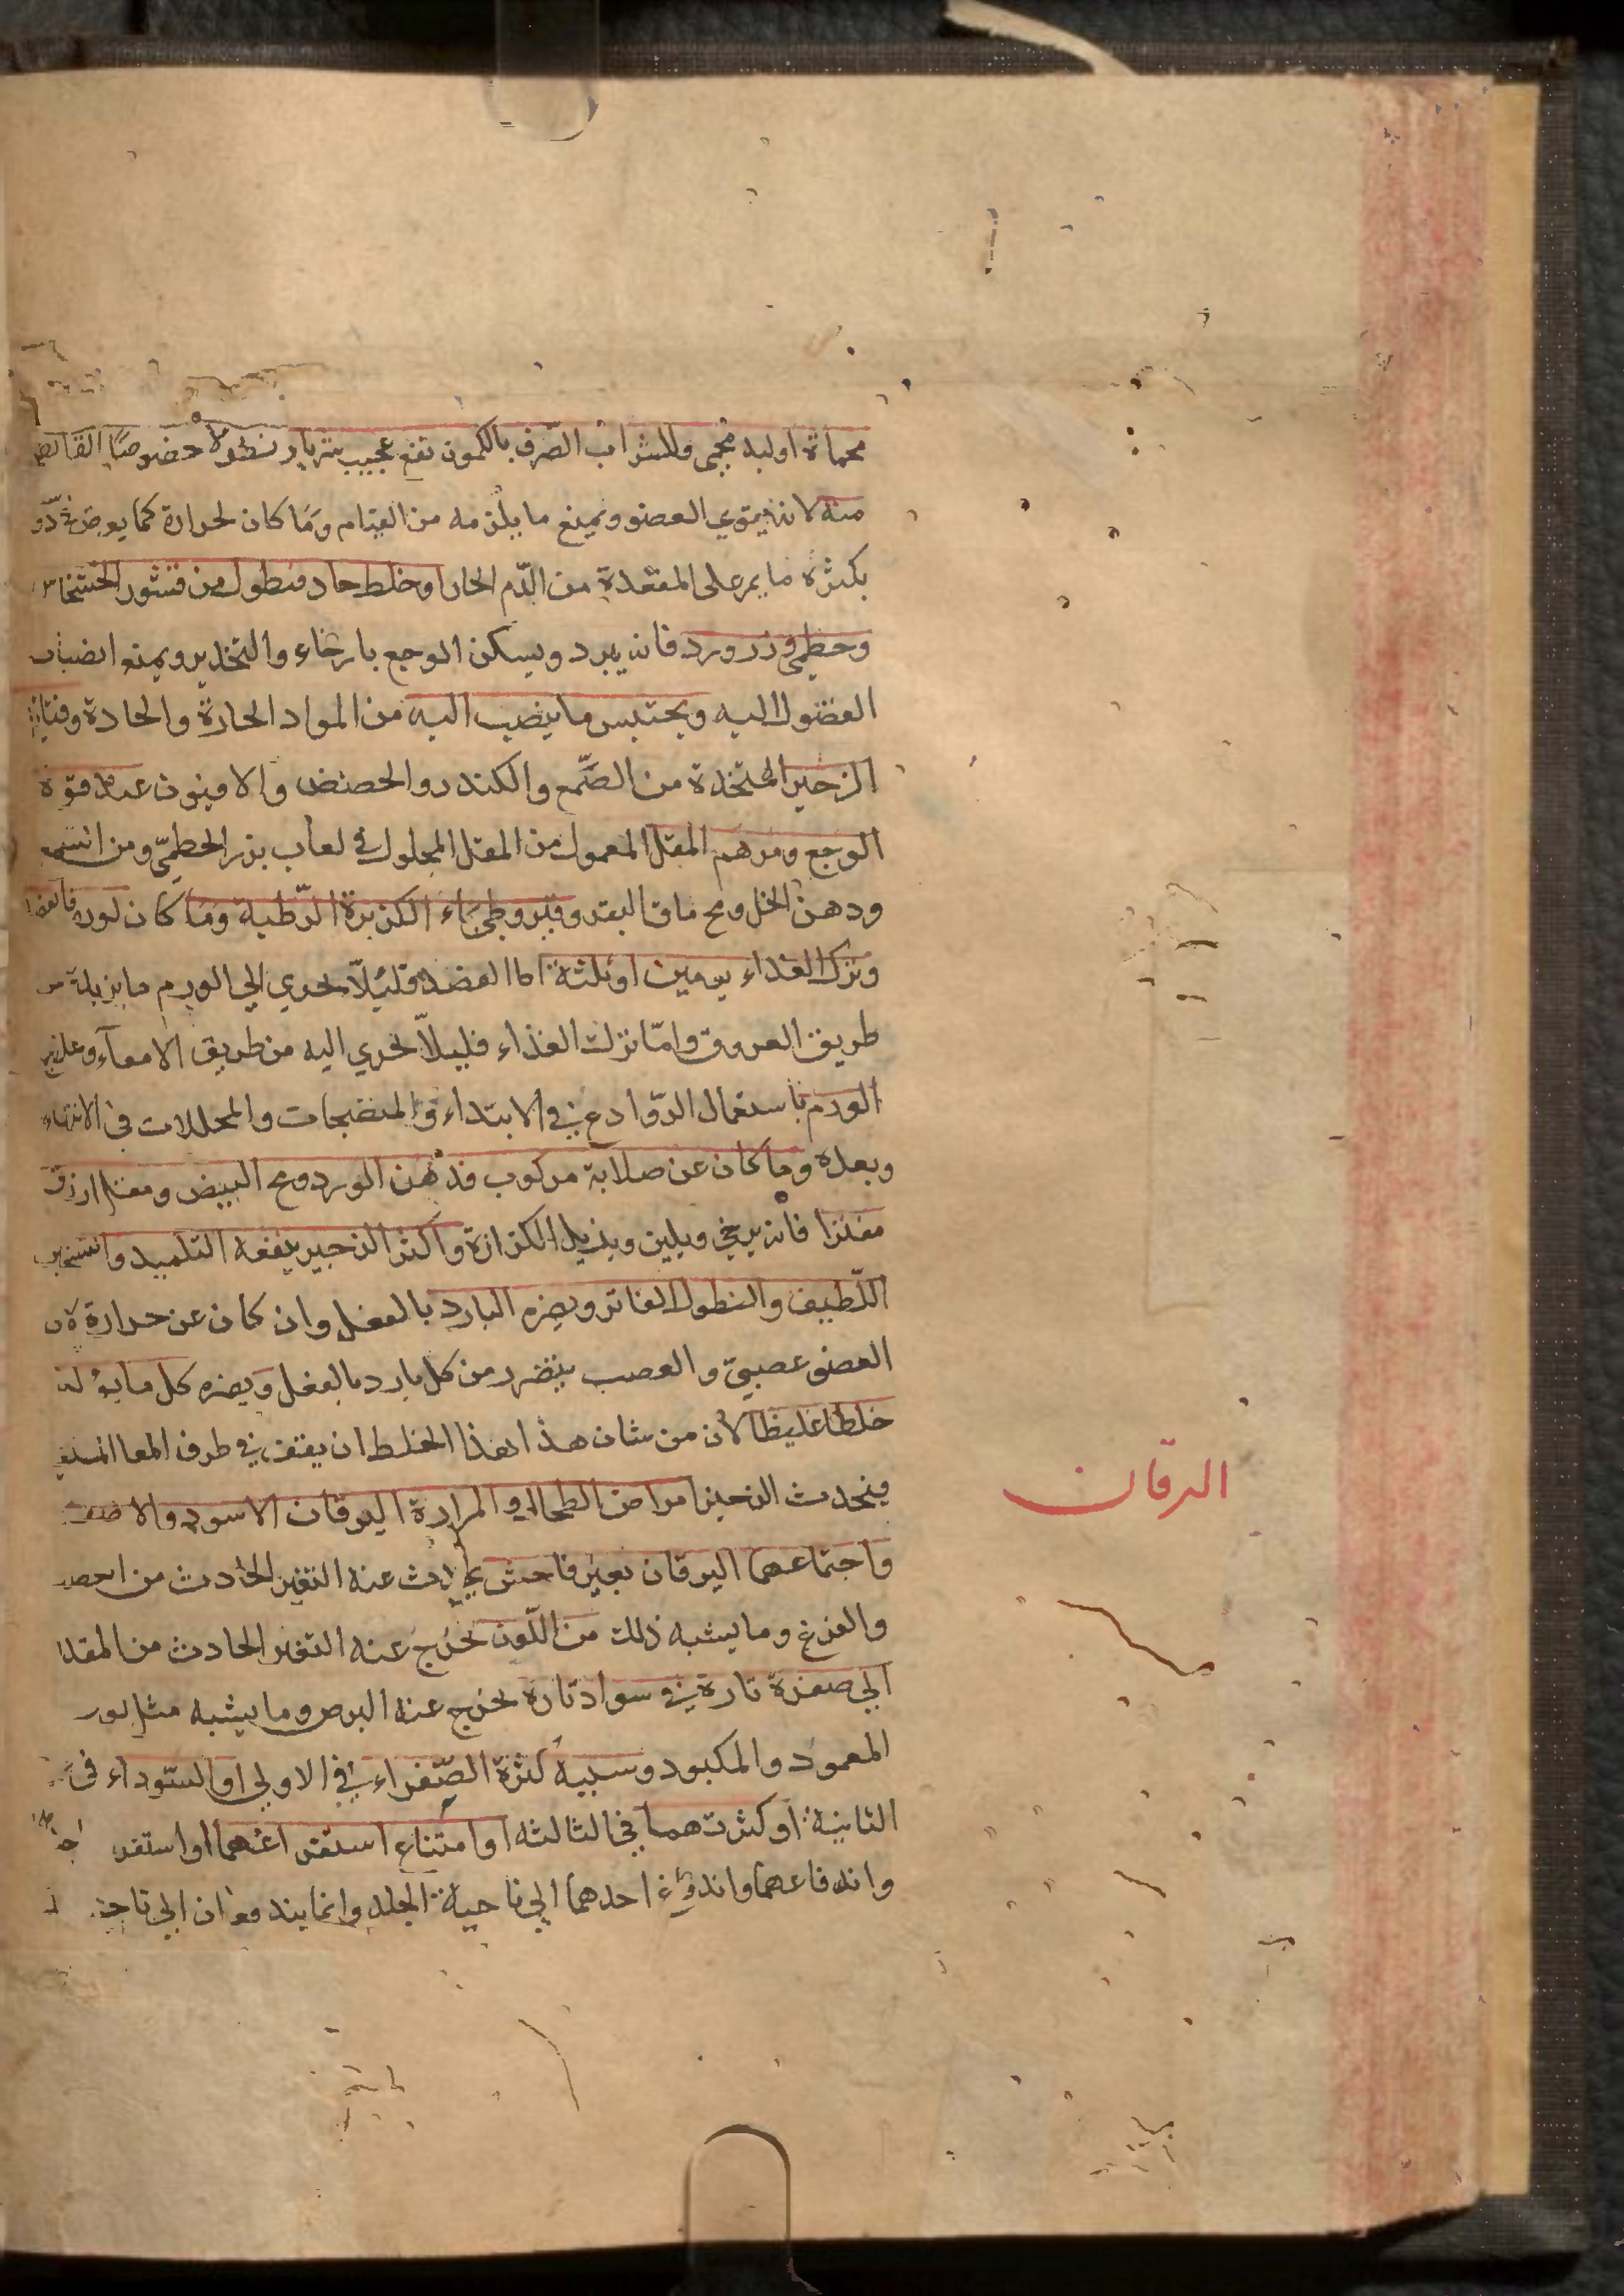 محماة او لبد محمى وللشراب الصّرف بالكمون نفع عجيب خصوصًا القابض
منه لانه يقوي العضو ويمنع ما يلزمه من القيام ومَا كان لحرارة كما يعرض
بكثرة ما يمر على المقعدة من الدّم الحار او خلط حاد فنطول من قشور الخشخاش
وخطمى وزر ورد فانه يبرد ويسكن الوجع بارخاء والتخدير ويمنع انصباب
الفضول اليه ويحتبس ما ينصب اليه من المواد الحارة والحادة
الزحير المتخذة من الصّمغ والكندر والحضض والافيون عند قوة
الوجع ومرهم المقل المعمول من المقل المحلول في لعاب بزر الخطميّ ومن
ودهن الخل ومخ ساق البقر وقيروطى بماء الكزبرة الرّطبة ومَا كان لورم
وترك الغذاء يومين او ثلثة اما الفصد فليلاّ يجري الي الورم ما يزيله
طريق العروق وامّا ترك الغذاء فليلاّ يجري اليه من طريق الامعآء وعلاج
الورم باستعمال الرّوادع في الابتداء والمنضجات والمحللات في الانتهاء
وبعده وما كان عن صلابة مركوب فدهن الورد ومح البيض ومقل ازرق
مفترا فانه يرخي ويلين ويزيل الكزازة واكثر الزحير ينفعه التلميد والتسخين
اللّطيف والنطول الفاتر ويضره البارد بالفعل وان كان عن حرارة لان
العضو عصبيّ والعصب يتضرر من كل بارد بالفعل ويضره كل ما يولد
خلطا غليظا لان من شان هذا الخلط ان يقف في طرف المعا المستقيم
فيحدث الزحير امراض الطحال والمرارة اليرقان الاسود والاصفر
واجتماعهما اليرقان تغير فاحش يحدث عنه التغير الحادث من
والفزع وما يشبه ذلك من اللّون يخرج عنه التغير الحادث من
الي صفرة تارة وسواد تارة يخرج عنه البرص وما يشبه مثل لون
الممعود والمكبود وسببه كثرة الصّفراء في الاولي او السّوداء في
الثانية او كثرتهما في الثالثه او امتناع استفراغهما او
واندفاعهما واندفاع احدهما الي ناحية الجلد وانما يندفعان الي
اليرقان